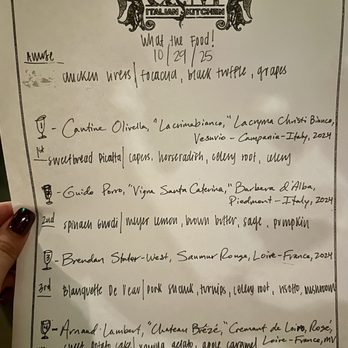 ITALIAN KITCHEN
What the Food!
10/29/25
Amuse
chicken livers | focaccia, black truffle, grapes
1 - Cantine Olivella, "Lacrimabianco," Lacryma Christi Bianco,
Vesuvio - Campania - Italy, 2024
1st
sweetbread Picatta | capers, horseradish, celery root, celery
- Guido Porro, "Vigna Santa Caterina," Barbera d'Alba,
Piedmont - Italy, 2024
2nd
spinach gnudi | meyer lemon, brown butter, sage, pumpkin
3 - Brendan Stater-West, Saumur Rouge, Loire - France, 2024
3rd
Blanquette De Veau | pork shank, turnips, celery root, risotto, mushroom
- Arnaud Lambert, "Chateau Brézé," Cremant de Loire, Rosé,
Loire - France, MV
sweet potato cake | vanilla gelato, apple caramel